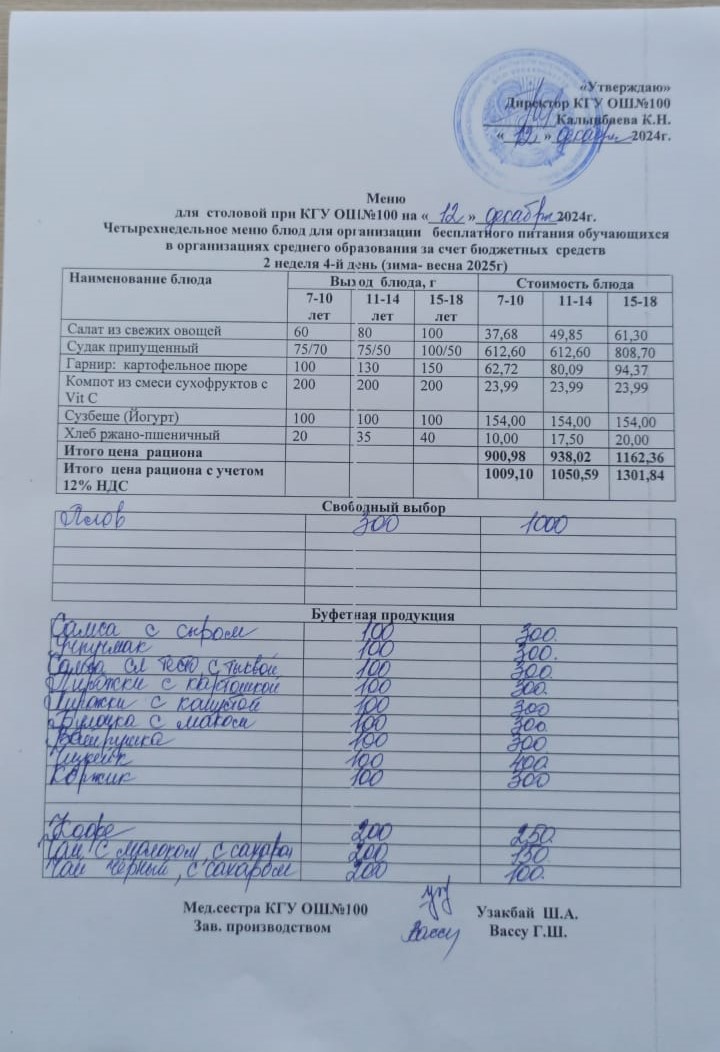 «Утверждаю»
Директор КГУ ОШ№100
Калынбаева К.Н.
« 12 » декабря 2024г.
Меню
для столовой при КГУ ОШ№100 на « 12 » декабря 2024г.
Четырехнедельное меню блюд для организации бесплатного питания обучающихся
в организациях среднего образования за счет бюджетных средств
2 неделя 4-й день (зима- весна 2025г)
Наименование блюда Выход блюда, г Стоимость блюда
7-10 лет 11-14 лет 15-18 лет 7-10 11-14 15-18
Салат из свежих овощей 60 80 100 37,68 49,85 61,30
Судак припущенный 75/70 75/50 100/50 612,60 612,60 808,70
Гарнир: картофельное пюре 100 130 150 62,72 80,09 94,37
Компот из смеси сухофруктов с Vit C 200 200 200 23,99 23,99 23,99
Сузбеше (Йогурт) 100 100 100 154,00 154,00 154,00
Хлеб ржано-пшеничный 20 35 40 10,00 17,50 20,00
Итого цена рациона 900,98 938,02 1162,36
Итого цена рациона с учетом 12% НДС 1009,10 1050,59 1301,84
Свободный выбор
Плов 300 1000
Буфетная продукция
Самса с сыром 100 300.
Учпучмак 100 300.
Самса сл тесто с тыквой 100 300.
Пирожки с картошкой 100 300.
Пирожки с капустой 100 300
Булочка с маком 100 300.
Ватрушка 100 300
Чизкейк 100 400.
Коржик 100 300
Кофе 200 250.
Чай с молоком, с сахаром 200 150.
Чай черный, с сахаром 200 100.
Мед.сестра КГУ ОШ№100 Узакбай Ш.А.
Зав. производством Вассу Вассу Г.Ш.